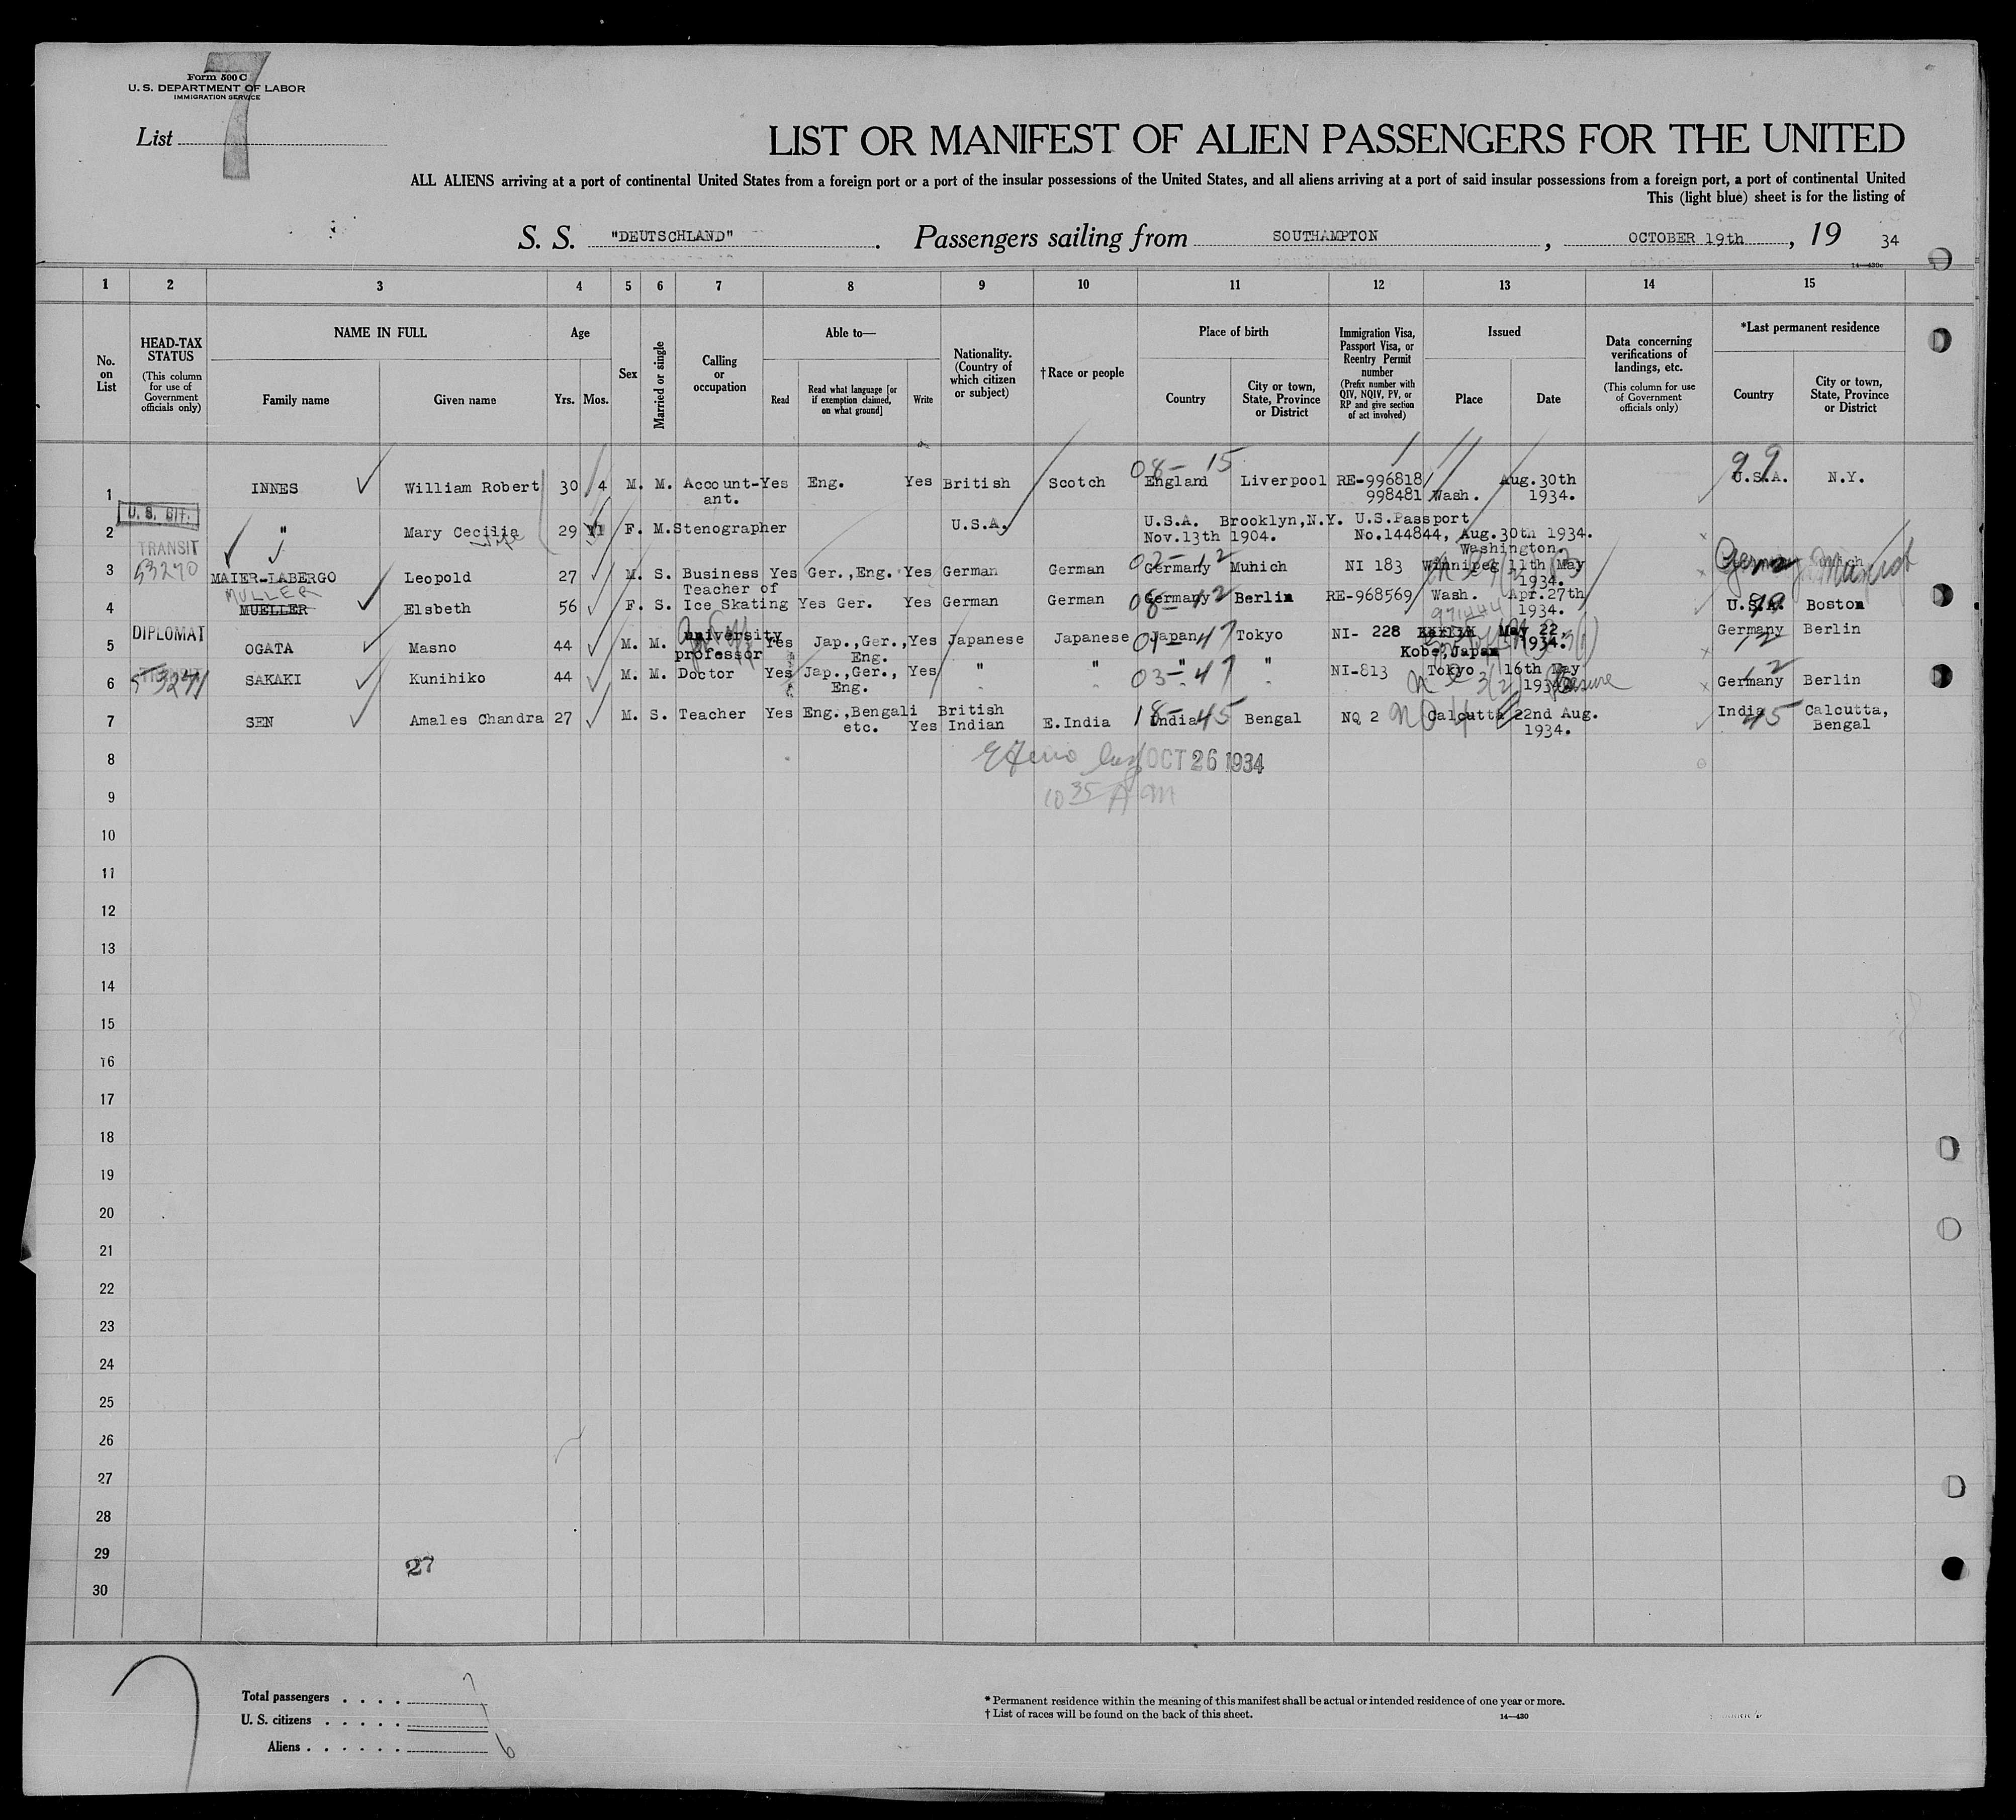 Form 500 C
U. S. DEPARTMENT OF LABOR
IMMIGRATION SERVICE
List 7
LIST OR MANIFEST OF ALIEN PASSENGERS FOR THE UNITED
ALL ALIENS arriving at a port of continental United States from a foreign port or a port of the insular possessions of the United States, and all aliens arriving at a port of said insular possessions from a foreign port, a port of continental United
This (light blue) sheet is for the listing of
S. S. "DEUTSCHLAND". Passengers sailing from SOUTHAMPTON, OCTOBER 19th, 19 34
14—430c
1 2 3 4 5 6 7 8 9 10 11 12 13 14 15
No. on List
HEAD-TAX STATUS
(This column for use of Government officials only)
NAME IN FULL
Family name
Given name
Age
Yrs. Mos.
Sex
Married or single
Calling or occupation
Able to—
Read
Read what language [or if exemption claimed, on what ground]
Write
Nationality. (Country of which citizen or subject)
†Race or people
Place of birth
Country
City or town, State, Province or District
Immigration Visa, Passport Visa, or Reentry Permit number
(Prefix number with QIV, NQIV, PV, or RP and give section of act involved)
Issued
Place
Date
Data concerning verifications of landings, etc.
(This column for use of Government officials only)
*Last permanent residence
Country
City or town, State, Province or District
1 INNES William Robert 30 4 M. M. Account-ant. Yes Eng. Yes British Scotch 08-15 England Liverpool RE-996818 998481 Wash. Aug.30th 1934. 99 U.S.A. N.Y.
U. S. CIT.
2 " Mary Cecilia wife 29 11 F. M. Stenographer U.S.A. U.S.A. Brooklyn,N.Y. Nov.13th 1904. U.S.Passport No.144844, Aug.30th 1934. Washington.
TRANSIT
53270
3 MAIER-LABERGO Leopold 27 M. S. Business Yes Ger.,Eng. Yes German German 02-12 Germany Munich NI 183 Winnipeg 11th May 1934. Germany Munich
MULLER
4 MUELLER Elsbeth 56 F. S. Teacher of Ice Skating Yes Ger. Yes German German 08-12 Germany Berlin RE-968569 Wash. Apr.27th 1934. 971444 U.S.A. 99 Boston
DIPLOMAT
5 OGATA Masno 44 M. M. university professor Yes Jap.,Ger., Eng. Yes Japanese Japanese 01-47 Japan Tokyo NI- 228 Kobe,Japan May 22, 1934. Germany 12 Berlin
TRANSIT
53271
6 SAKAKI Kunihiko 44 M. M. Doctor Yes Jap.,Ger., Eng. Yes " " 03-47 " " NI-813 Tokyo 16th May 1934 3(2) Pleasure Germany 12 Berlin
7 SEN Amales Chandra 27 M. S. Teacher Yes Eng.,Bengali etc. Yes British Indian E.India 18-45 India Bengal NQ 2 Calcutta 22nd Aug. 1934. India 45 Calcutta, Bengal
8 OCT 26 1934
9 10 35 AM
10
11
12
13
14
15
16
17
18
19
20
21
22
23
24
25
26
27
28
29 27
30
Total passengers . . . . 7
U. S. citizens . . . . . 1
Aliens . . . . . . 6
* Permanent residence within the meaning of this manifest shall be actual or intended residence of one year or more.
† List of races will be found on the back of this sheet.
14—430